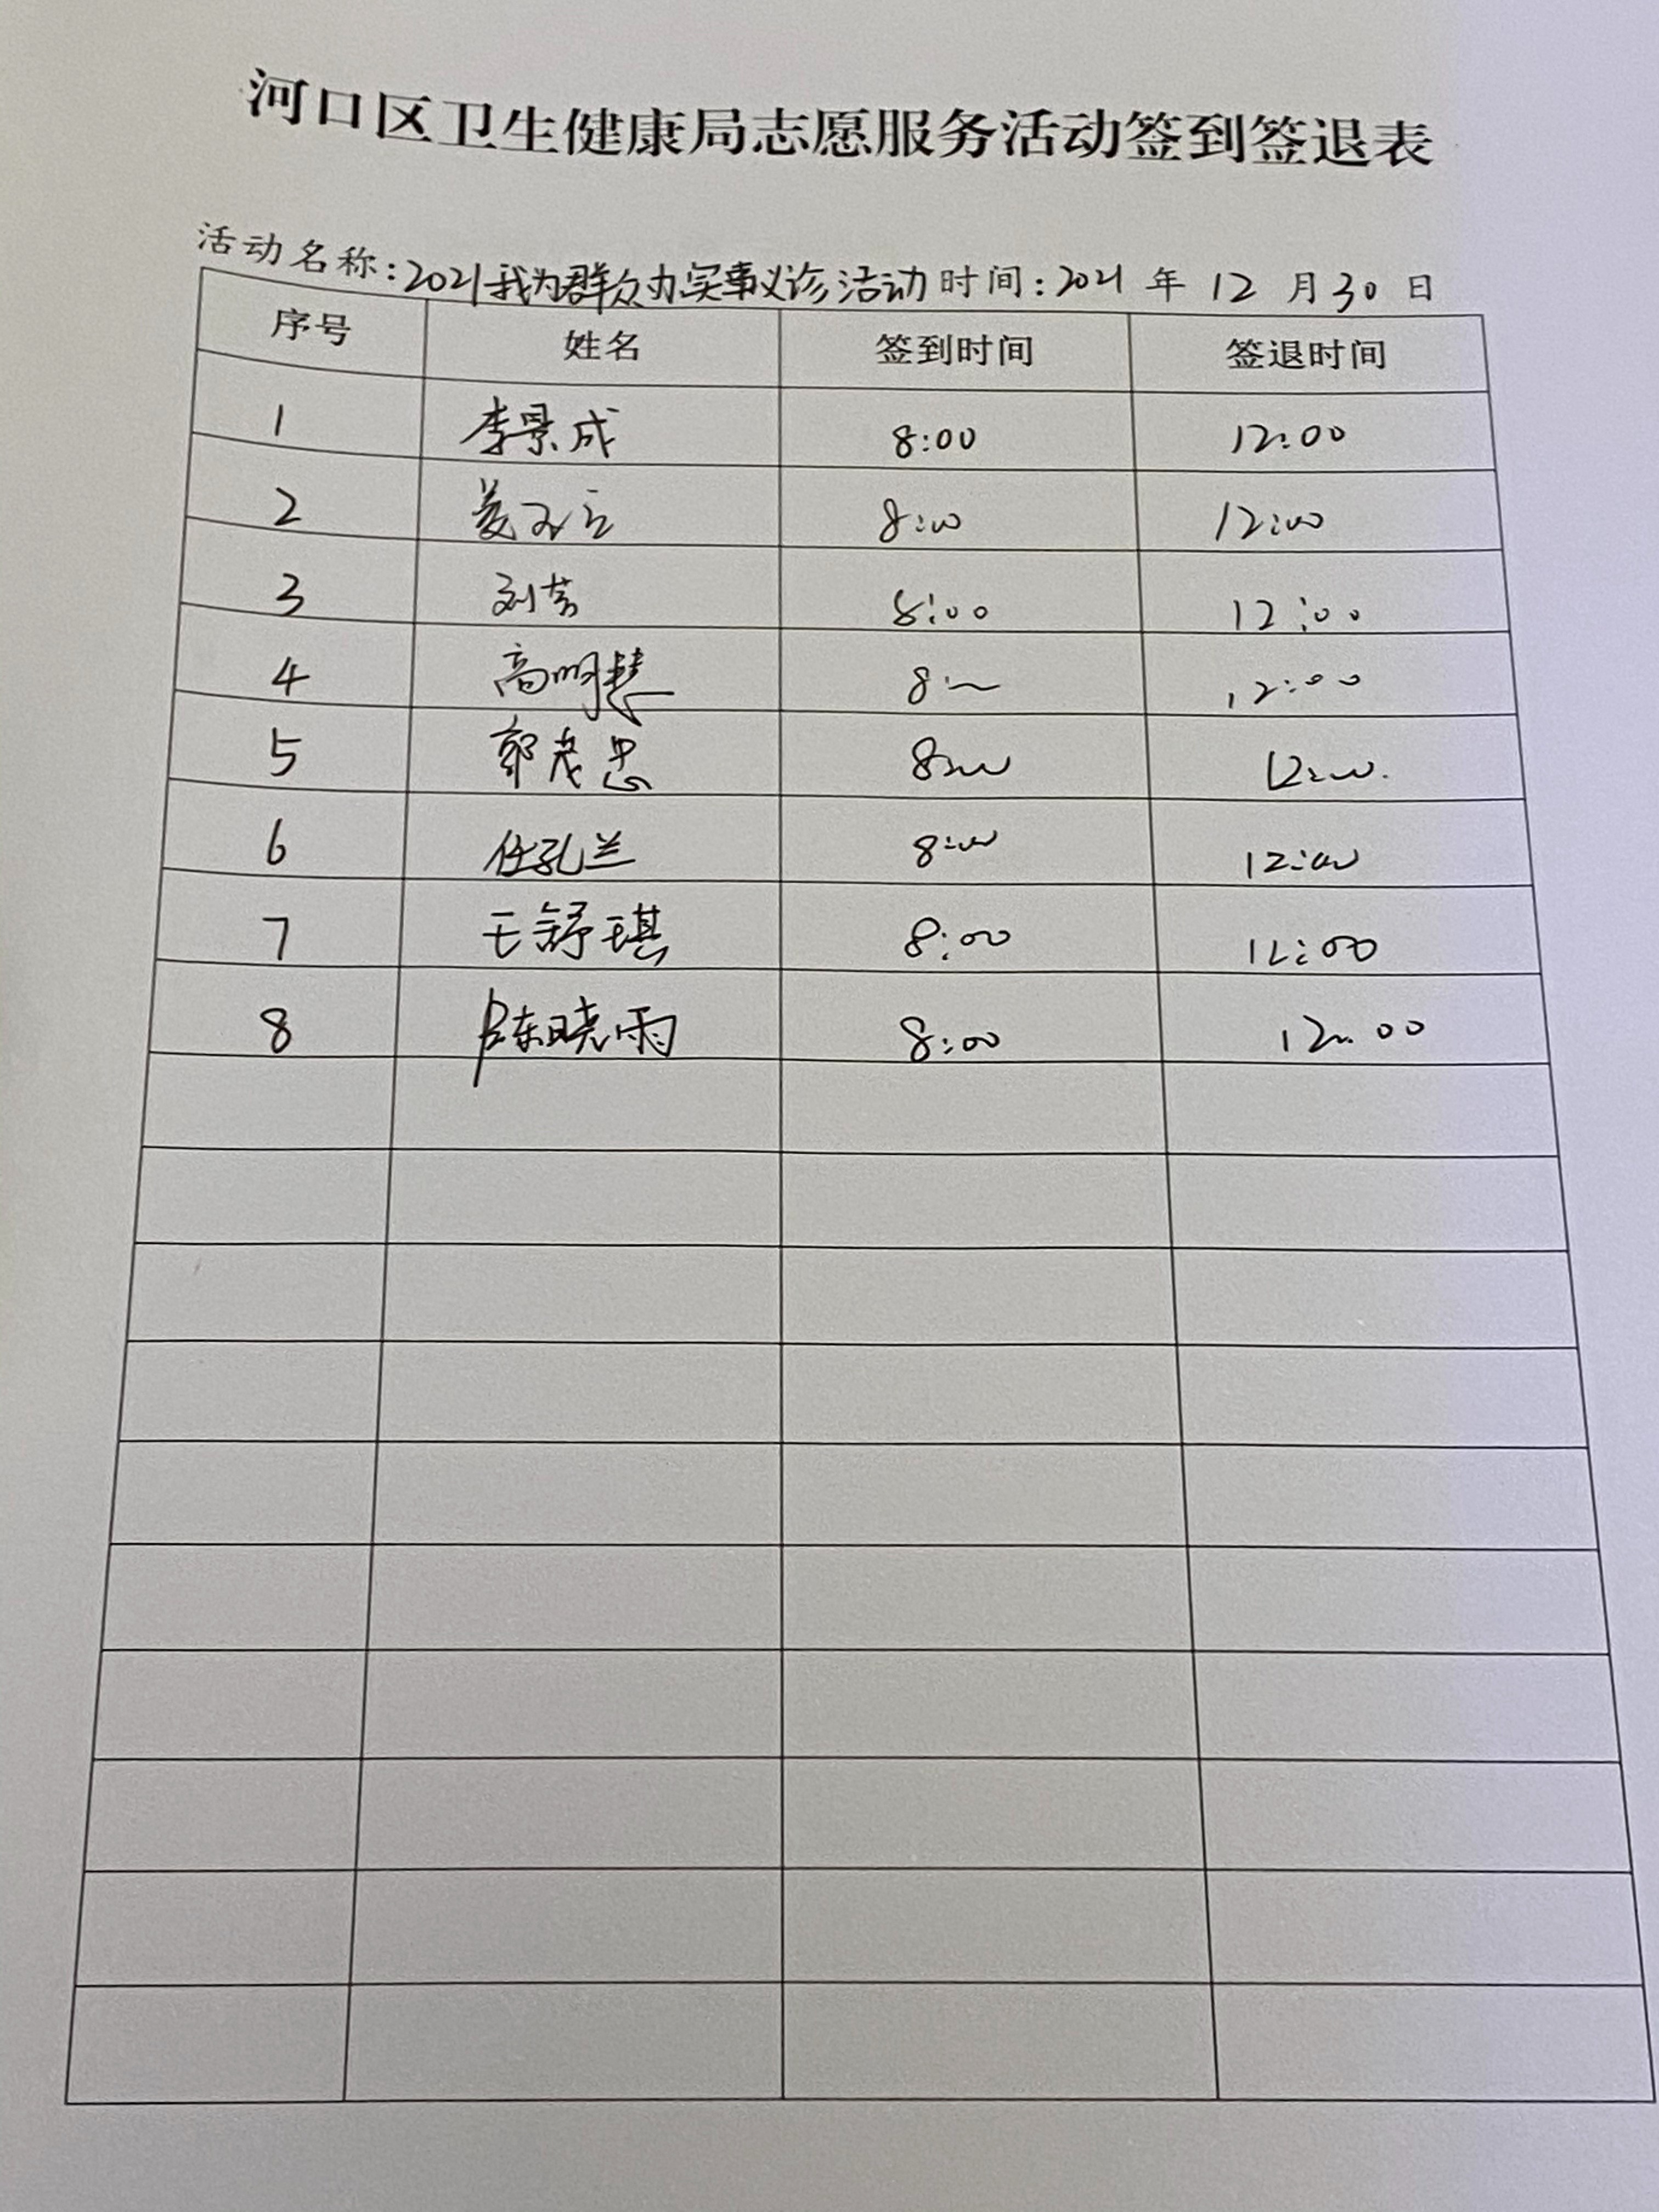 河口区卫生健康局志愿服务活动签到签退表
活动名称:2021我为群众办实事义诊活动时间:2021 年 12 月 30 日
序号 姓名 签到时间 签退时间
1 李景成 8:00 12:00
2 姜 8:00 12:00
3 刘芳 8:00 12:00
4 高明慧 8:00 12:00
5 郭茂忠 8:00 12:00
6 任孔兰 8:00 12:00
7 王舒琪 8:00 12:00
8 陈晓雨 8:00 12:00